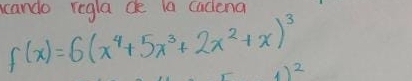 regla de la cadena
f(x)=6(x⁴+5x³+2x²+x)³
)²